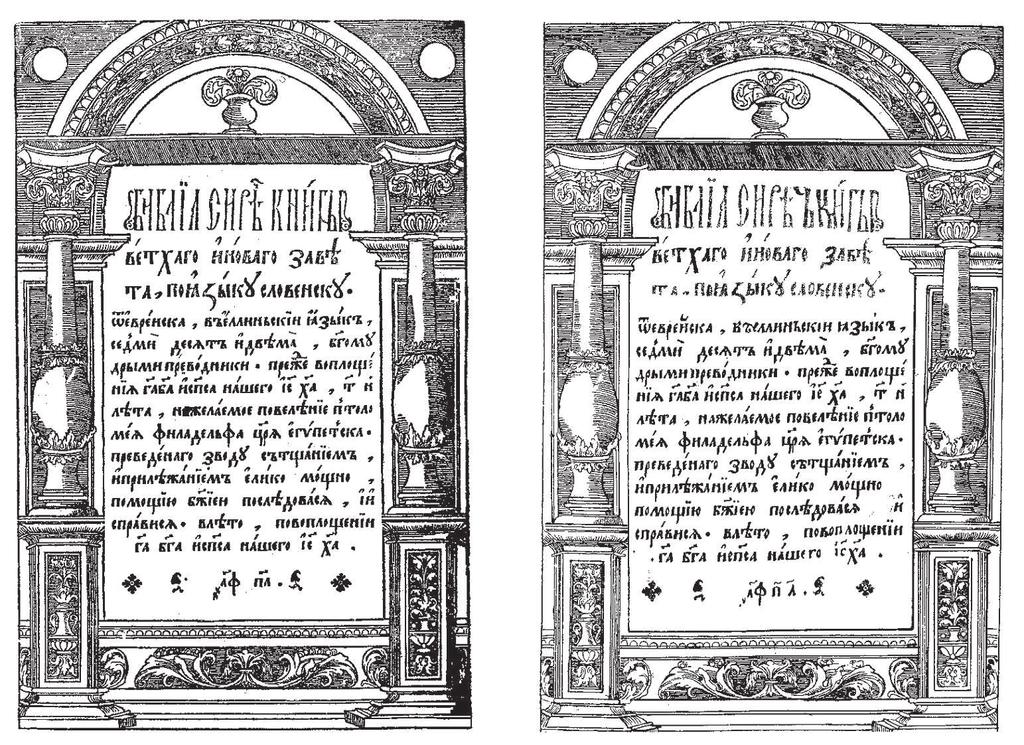 БИБЛІА СИРѢЧ КНИГЫ
ве́тхаго и҆но́ваго завѣ
та, поꙗ҆зы́ку словенску.
Ѿе҆вре́йска, въе҆́ллиньскіи ꙗ҆зы́къ,
се́дмь десять идвѣма̀, бг҃ому
дрыми прево́дники. пре́жⷣе воплоще́
нїѧ гд҃а бг҃а и҆сп҃са на́шего і҆с҃ ха҃, т҃ и
лѣта, нажела́емое повелѣ́нїе пто́ло
ме́ѧ филаде́льфа цр҃ѧ є҆гѵ́петска.
преведе́наго зво́ду сътща́нїемъ,
и҆прилѣжа́нїемъ є҆́лико мо́щно,
помощїю бж҃їею послѣ́довасѧ, и҆
спра́висѧ. влѣ́то, повоплоще́нїи
гд҃а бг҃а и҆сп҃са на́шего і҆с҃ ха҃.
҂аф п҃а.
БИБЛІА СИРѢЧ КНИГЫ
ве́тхаго и҆но́ваго завѣ
та, поꙗ҆зы́ку словенску.
Ѿе҆вре́йска, въе҆́ллиньскіи ꙗ҆зы́къ,
се́дмь десять идвѣма̀, бг҃ому
дрыми прево́дники. пре́жⷣе воплоще́
нїѧ гд҃а бг҃а и҆сп҃са на́шего і҆с҃ ха҃, т҃ и
лѣта, нажела́емое повелѣ́нїе пто́ло
ме́ѧ филаде́льфа цр҃ѧ є҆гѵ́петска.
преведе́наго зво́ду сътща́нїемъ,
и҆прилѣжа́нїемъ є҆́лико мо́щно
помощїю бж҃їею послѣ́довасѧ и҆
спра́висѧ. влѣ́то, повоплоще́нїи
гд҃а бг҃а и҆сп҃са на́шего і҆с҃ ха҃.
҂аф п҃а.